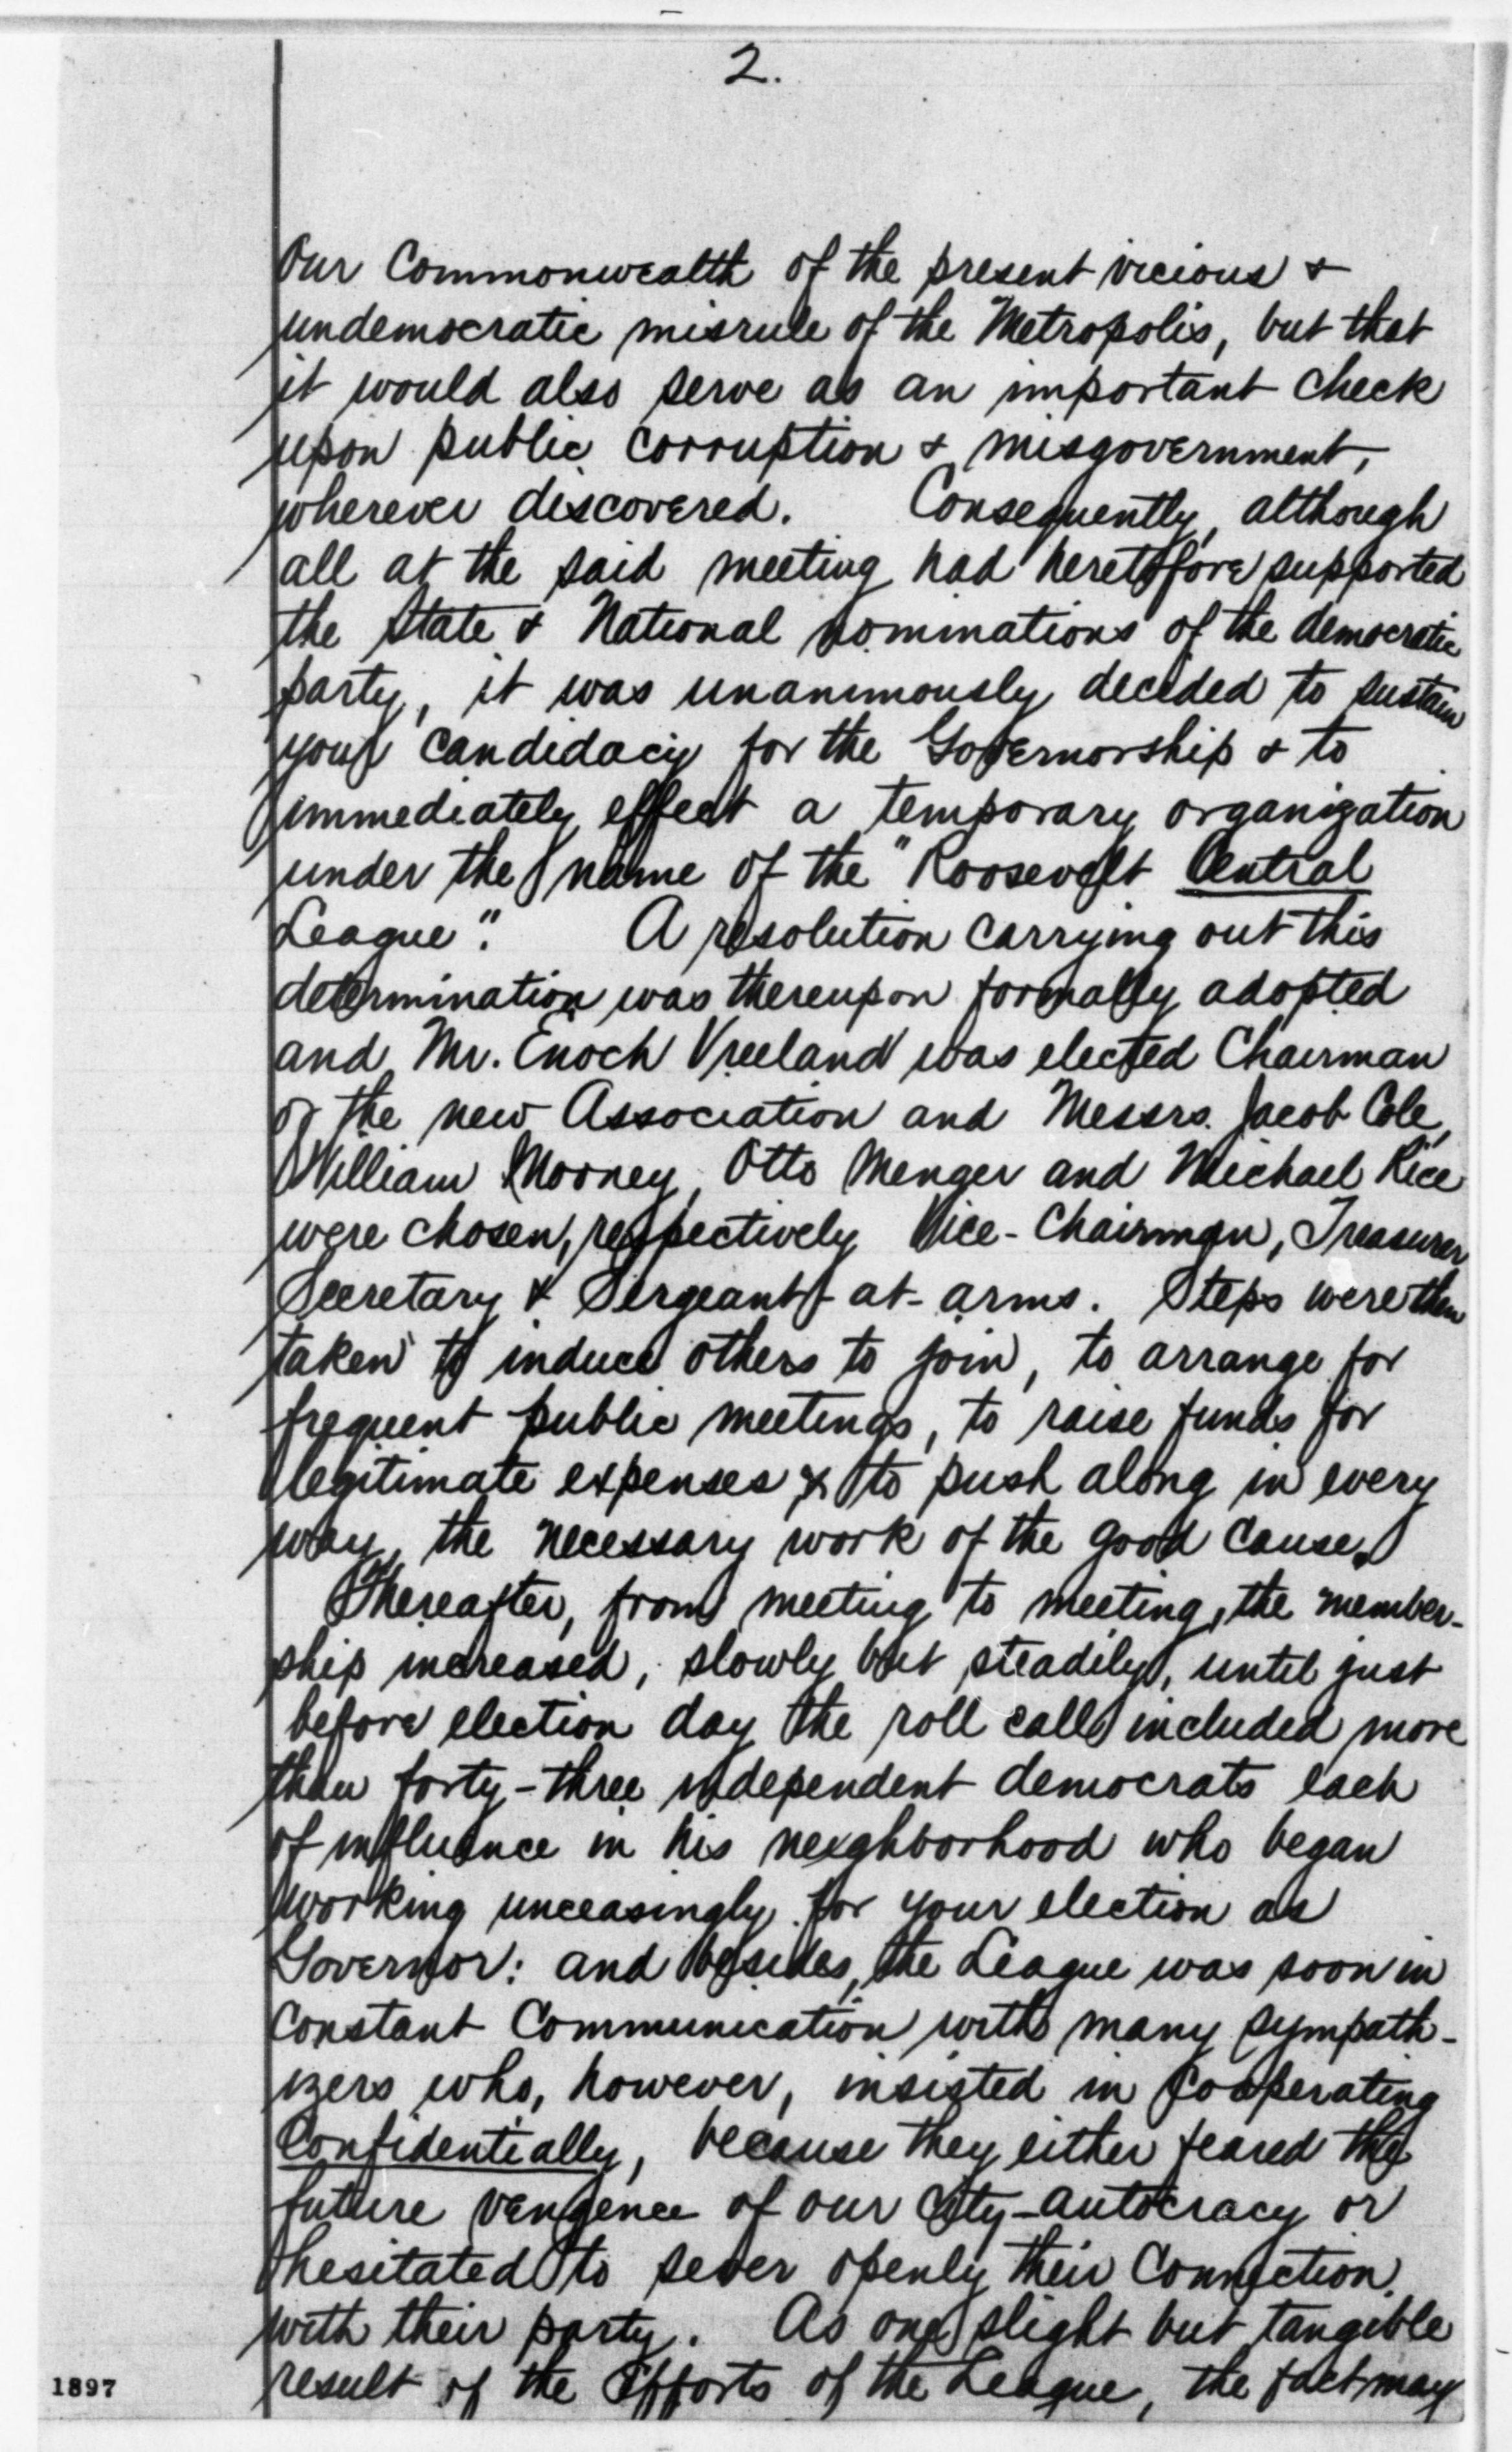 2.
Our Commonwealth of the present vicious &
undemocratic misrule of the Metropolis, but that
it would also serve as an important check
upon public corruption & misgovernment,
wherever discovered. Consequently, although
all at the said meeting had heretofore supported
the State & National nominations of the democratic
party, it was unanimously decided to sustain
your candidacy for the Governorship & to
immediately effect a temporary organization
under the name of the "Roosevelt Central
League". A resolution carrying out this
determination was thereupon formally adopted
and Mr. Enoch Vreeland was elected Chairman
of the new Association and Messrs. Jacob Cole,
William Mooney, Otto Menger and Michael Rice
were chosen, respectively Vice-Chairman, Treasurer
Secretary & Sergeant-at-arms. Steps were then
taken to induce others to join, to arrange for
frequent public meetings, to raise funds for
legitimate expenses & to push along in every
way, the necessary work of the good cause.
Thereafter, from meeting to meeting, the member-
ship increased, slowly but steadily, until just
before election day the roll call included more
than forty-three independent democrats each
of influence in his neighborhood who began
working unceasingly for your election as
Governor: and besides, the League was soon in
constant communication with many sympath-
izers who, however, insisted in cooperating
Confidentially, because they either feared the
future vengence of our City-autocracy or
hesitated to sever openly their connection
with their party. As one slight but tangible
result of the efforts of the League, the fact may
1897